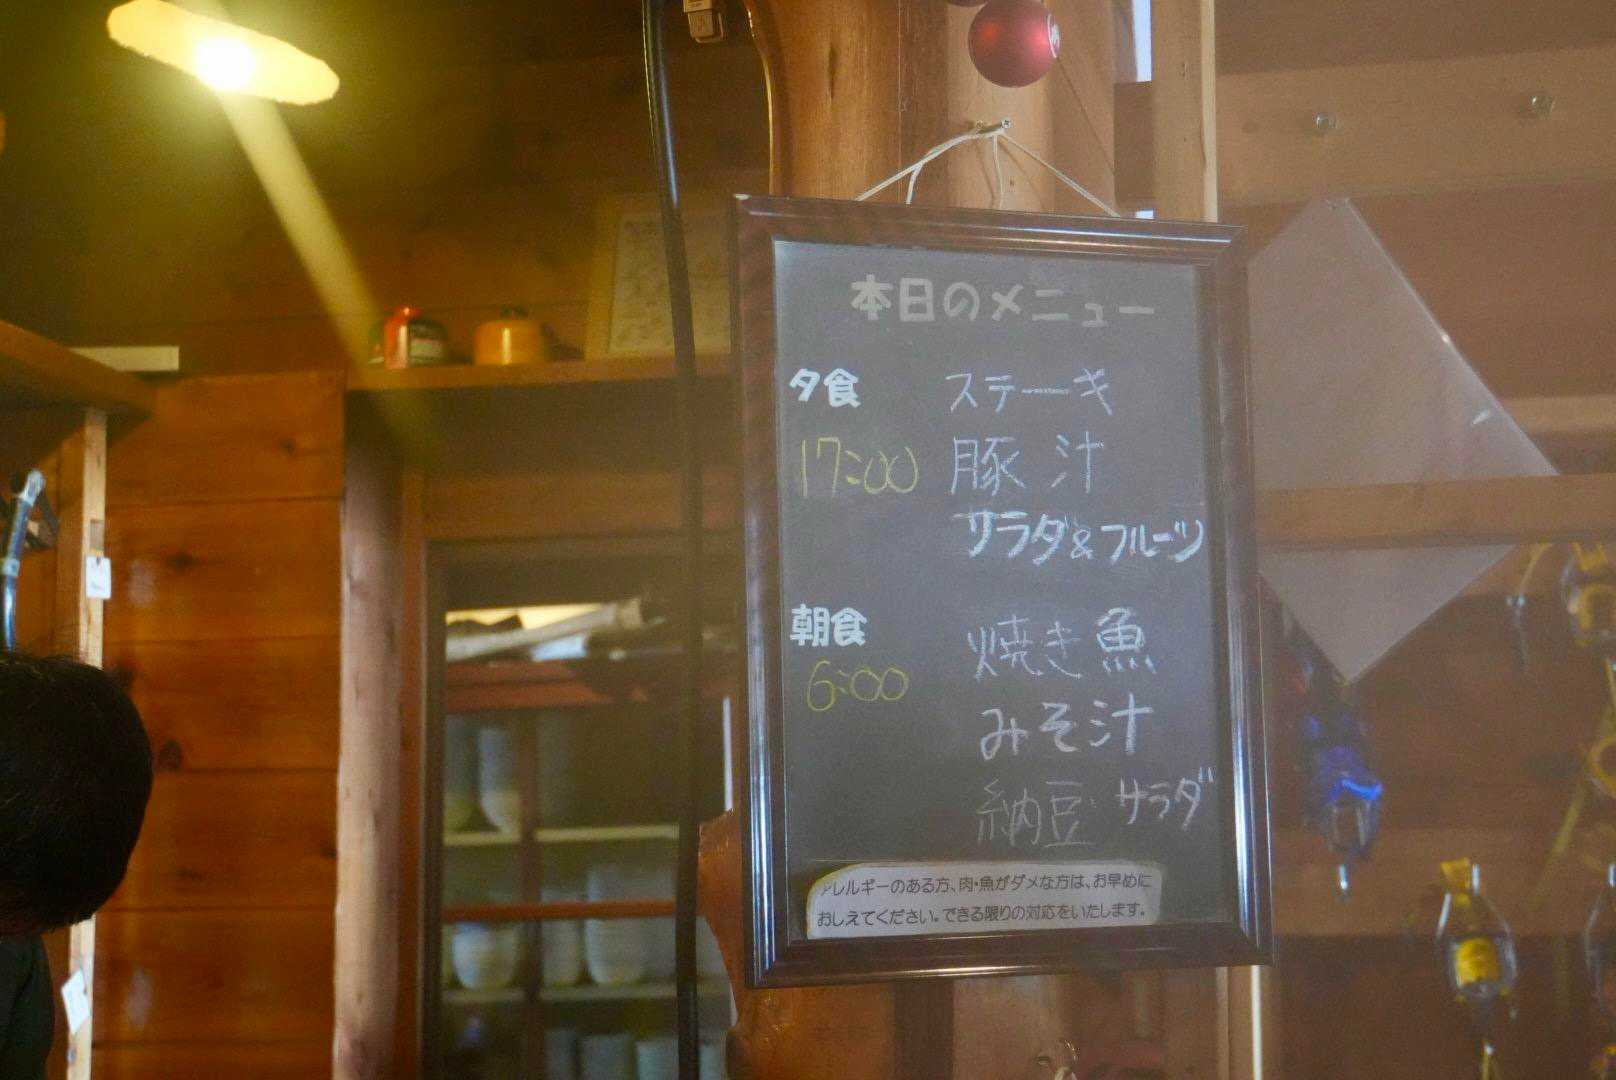 本日のメニュー
夕食 ステーキ
17:00 豚汁
サラダ&フルーツ
朝食 焼き魚
6:00
みそ汁
納豆 サラダ
アレルギーのある方、肉・魚がダメな方は、お早めに
おしえてください。できる限りの対応をいたします。